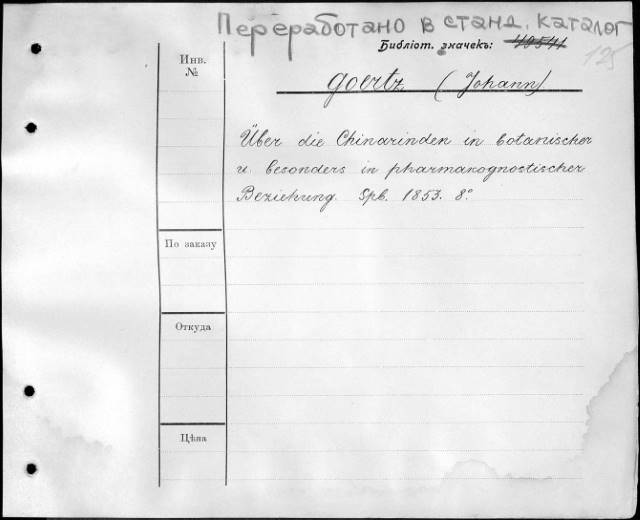 Переработано в станд. каталог
Библіот. значекъ: 40541
125
Инв.
№
Goertz (Johann)
Über die Chinarinden in botanischer
u. besonders in pharmakognostischer
Beziehung. Spb. 1853. 8°.
По заказу
Откуда
Цѣна